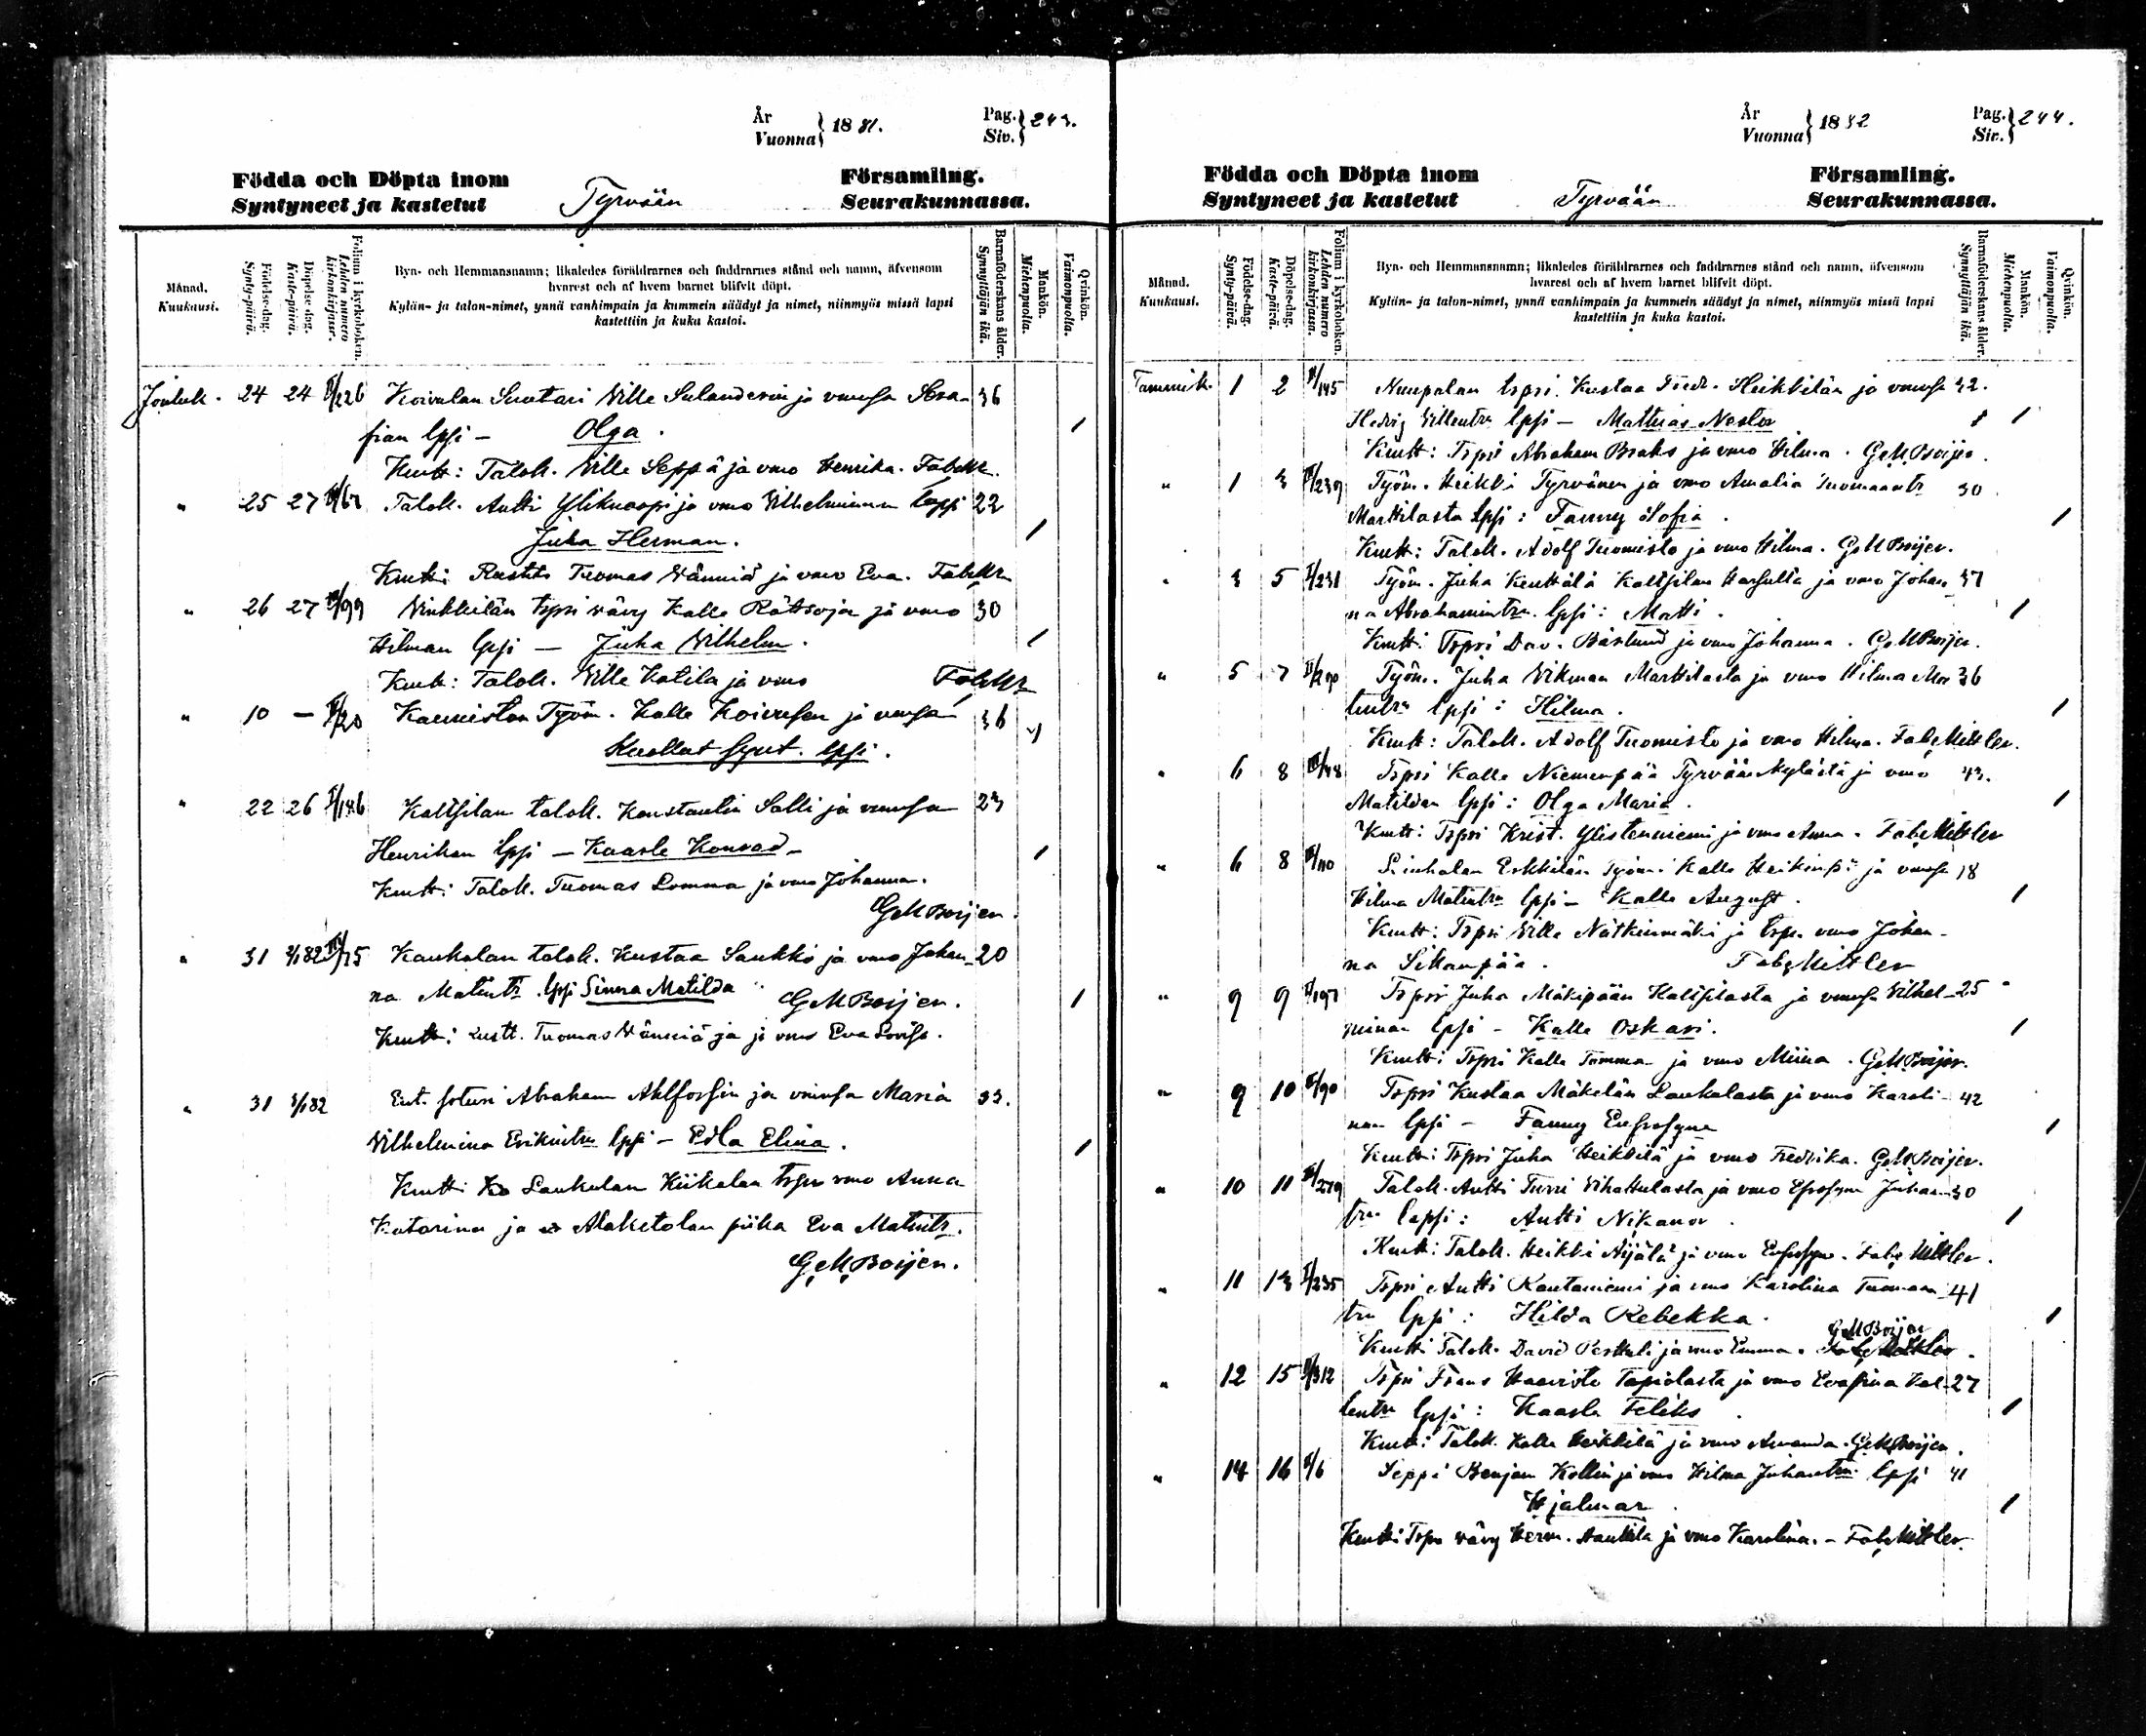 År
Vuonna } 1881.
Pag.
Siv. } 243.
Födda och Döpta inom
Församling.
Syntyneet ja kastetut
Tyrvään
Seurakunnassa.
Månad.
Kuukausi.
Födelse-dag.
Synty-päivä.
Döpelse-dag.
Kaste-päivä.
Folium i kyrkoboken.
Lehden numero
kirkonkirjassa.
Byn- och Hemmansnamn; likaledes föräldrarnes och faddrarnes stånd och namn, äfvensom
hvarest och af hvem barnet blifvit döpt.
Kylän- ja talon-nimet, ynnä vanhimpain ja kummein säädyt ja nimet, niinmyös missä lapsi
kastettiin ja kuka kastoi.
Barnaföderskans ålder.
Synnyttäjän ikä.
Mankön.
Miehenpuolta.
Qvinkön.
Vaimonpuolta.
Jouluk. 24 24 II/226 Koivulan Suutari Wille Sulanderin ja vmsa Sera- 36
fian lpsi - Olga.
Kmtt: Talok. Wille Seppä ja vmo Henrika.
" 25 27 Talok. Antti Yliknaapi ja vmo Wilhelminan lapsi 22
Juha Herman.
Kmtt: Rustt. Tuomas Wännid ja vmo Eva.
" 26 27 /99 Winkkilän tspri vävy Kalle Rättsoja ja vmo 30
Hilman lpsi — Juha Wilhelm.
Kmtt: Talok. Wille Katila ja vmo
" 10 — II/20 Kaumistan Työm. Kalle Koivusen ja vmsa 36
Kuollut synt. lpsi.
" 22 26 I/186 Kaltsilan talok. Konstantin Salli ja vmsa 23
Henrikan lpsi — Kaarle Konrad -
Kmtt: Talok. Tuomas Lomma ja vmo Johanna.
GM Boijer.
" 31 Kaukolan talok. Kustaa Saukko ja vmo Johan- 20
na Matintr. lpsi Sinna Matilda GM Boijer.
Kmtt: Rustt. Tuomas Wänniä ja vmo Eva Lovisa.
" 31 Ent. soturi Abraham Ahlforsin ja vmsa Maria 33.
Wilhelmina Erikintr. lpsi - Edla Elina.
Kmtt: Laukulan Kiikalan tspri vmo Anna
Katarina ja Alaketolan piika Eva Matintr.
GM Boijer.
År
Vuonna } 1882
Pag.
Siv. } 244.
Födda och Döpta inom
Församling.
Syntyneet ja kastetut
Tyrvään
Seurakunnassa.
Månad.
Kuukausi.
Födelse-dag.
Synty-päivä.
Döpelse-dag.
Kaste-päivä.
Folium i kyrkoboken.
Lehden numero
kirkonkirjassa.
Byn- och Hemmansnamn; likaledes föräldrarnes och faddrarnes stånd och namn, äfvensom
hvarest och af hvem barnet blifvit döpt.
Kylän- ja talon-nimet, ynnä vanhimpain ja kummein säädyt ja nimet, niinmyös missä lapsi
kastettiin ja kuka kastoi.
Barnaföderskans ålder.
Synnyttäjän ikä.
Mankön.
Miehenpuolta.
Qvinkön.
Vaimonpuolta.
Tammik. 1 2 /145 Nuupalan tspri. Kustaa Fredr. Heikkilän ja vmsa 32.
Hedvig Willentr. lpsi - Mathias Nestor
Kmtt: Tspri Abraham Braks ja vmo Hilma. GM Boijer.
" 1 3 II/239 Työm. Heikki Tyrvänen ja vmo Amalia Tuomaantr. 30
Marttilasta lpsi: Fanny Sofia.
Kmtt: Talok. Adolf Tuomisto ja vmo Hilma. GM Boijer.
" 3 5 I/231 Työm. Juha Kenttälä Kaltsilan Hansulta ja vmo Johan- 37
na Abrahamintr. lpsi: Matti.
Kmtt: Tspri Dav. Båslund ja vmo Johanna. GM Boijer.
" 5 7 Työm. Juha Wikman Marttilasta ja vmo Hilma Mar- 36
tintr. lpsi: Hilma.
Kmtt: Talok. Adolf Tuomisto ja vmo Hilma. Fab. Mittler.
" 6 8 III/48 Tspri Kalle Niemenpää Tyrväänkylästä ja vmo 43.
Matildan lpsi: Olga Maria.
Kmtt: Tspri Krist. Ylistenniemi ja vmo Anna. Fab. Mittler
" 6 8 /110 Liuhalan Erkkilän Työm. Kalle Heikinp. ja vmsa 18
Hilma Matintr. lpsi - Kalle August.
Kmtt: Tspri Wille Nätkinmäki ja tspr. vmo Johan-
na Sikanpää. Fab. Mittler
" 9 9 I/197 Tspri Juha Mäkipään Kaltsilasta ja vmsa Wilhel- 25
minan lpsi - Kalle Oskari.
Kmtt: Tspri Kalle Tomma ja vmo Miina. GM Boijer.
" 9 10 II/90 Tspri Kustaa Mäkelän Laukulasta ja vmo Karoli- 42
nan lpsi - Fanny Eufrosyne
Kmtt: Tspri Juha Heikkilä ja vmo Fredrika. GM Boijer.
" 10 11 II/279 Talok. Antti Turri Wihattulasta ja vmo Efrosyne Juhan- 30
tr. lapsi: Antti Nikanor.
Kmtt: Talok. Heikki Äijälä ja vmo Eufrosyne. Fab. Mittler.
" 11 13 I/235 Tspri Antti Rautaniemi ja vmo Karolina Tuomaan- 41
tr. lpsi: Hilda Rebekka.
GM Boijer
Kmtt: Talok. David Perttuli ja vmo Emma. Fab. Mittler.
" 12 15 II/312 Tspri Frans Haavisto Tapiolasta ja vmo Evastina Kal- 27
lentr. lpsi: Kaarle Feliks.
Kmtt: Talok. Kalle Heikkilä ja vmo Amanda. GM Boijer.
" 14 16 I/6 Seppä Benjam. Kollin ja vmo Hilma Juhantr. lpsi 41
Hjalmar.
Kmtt: Tspr. vävy Herm. Anttila ja vmo Karolina. - Fab. Mittler.